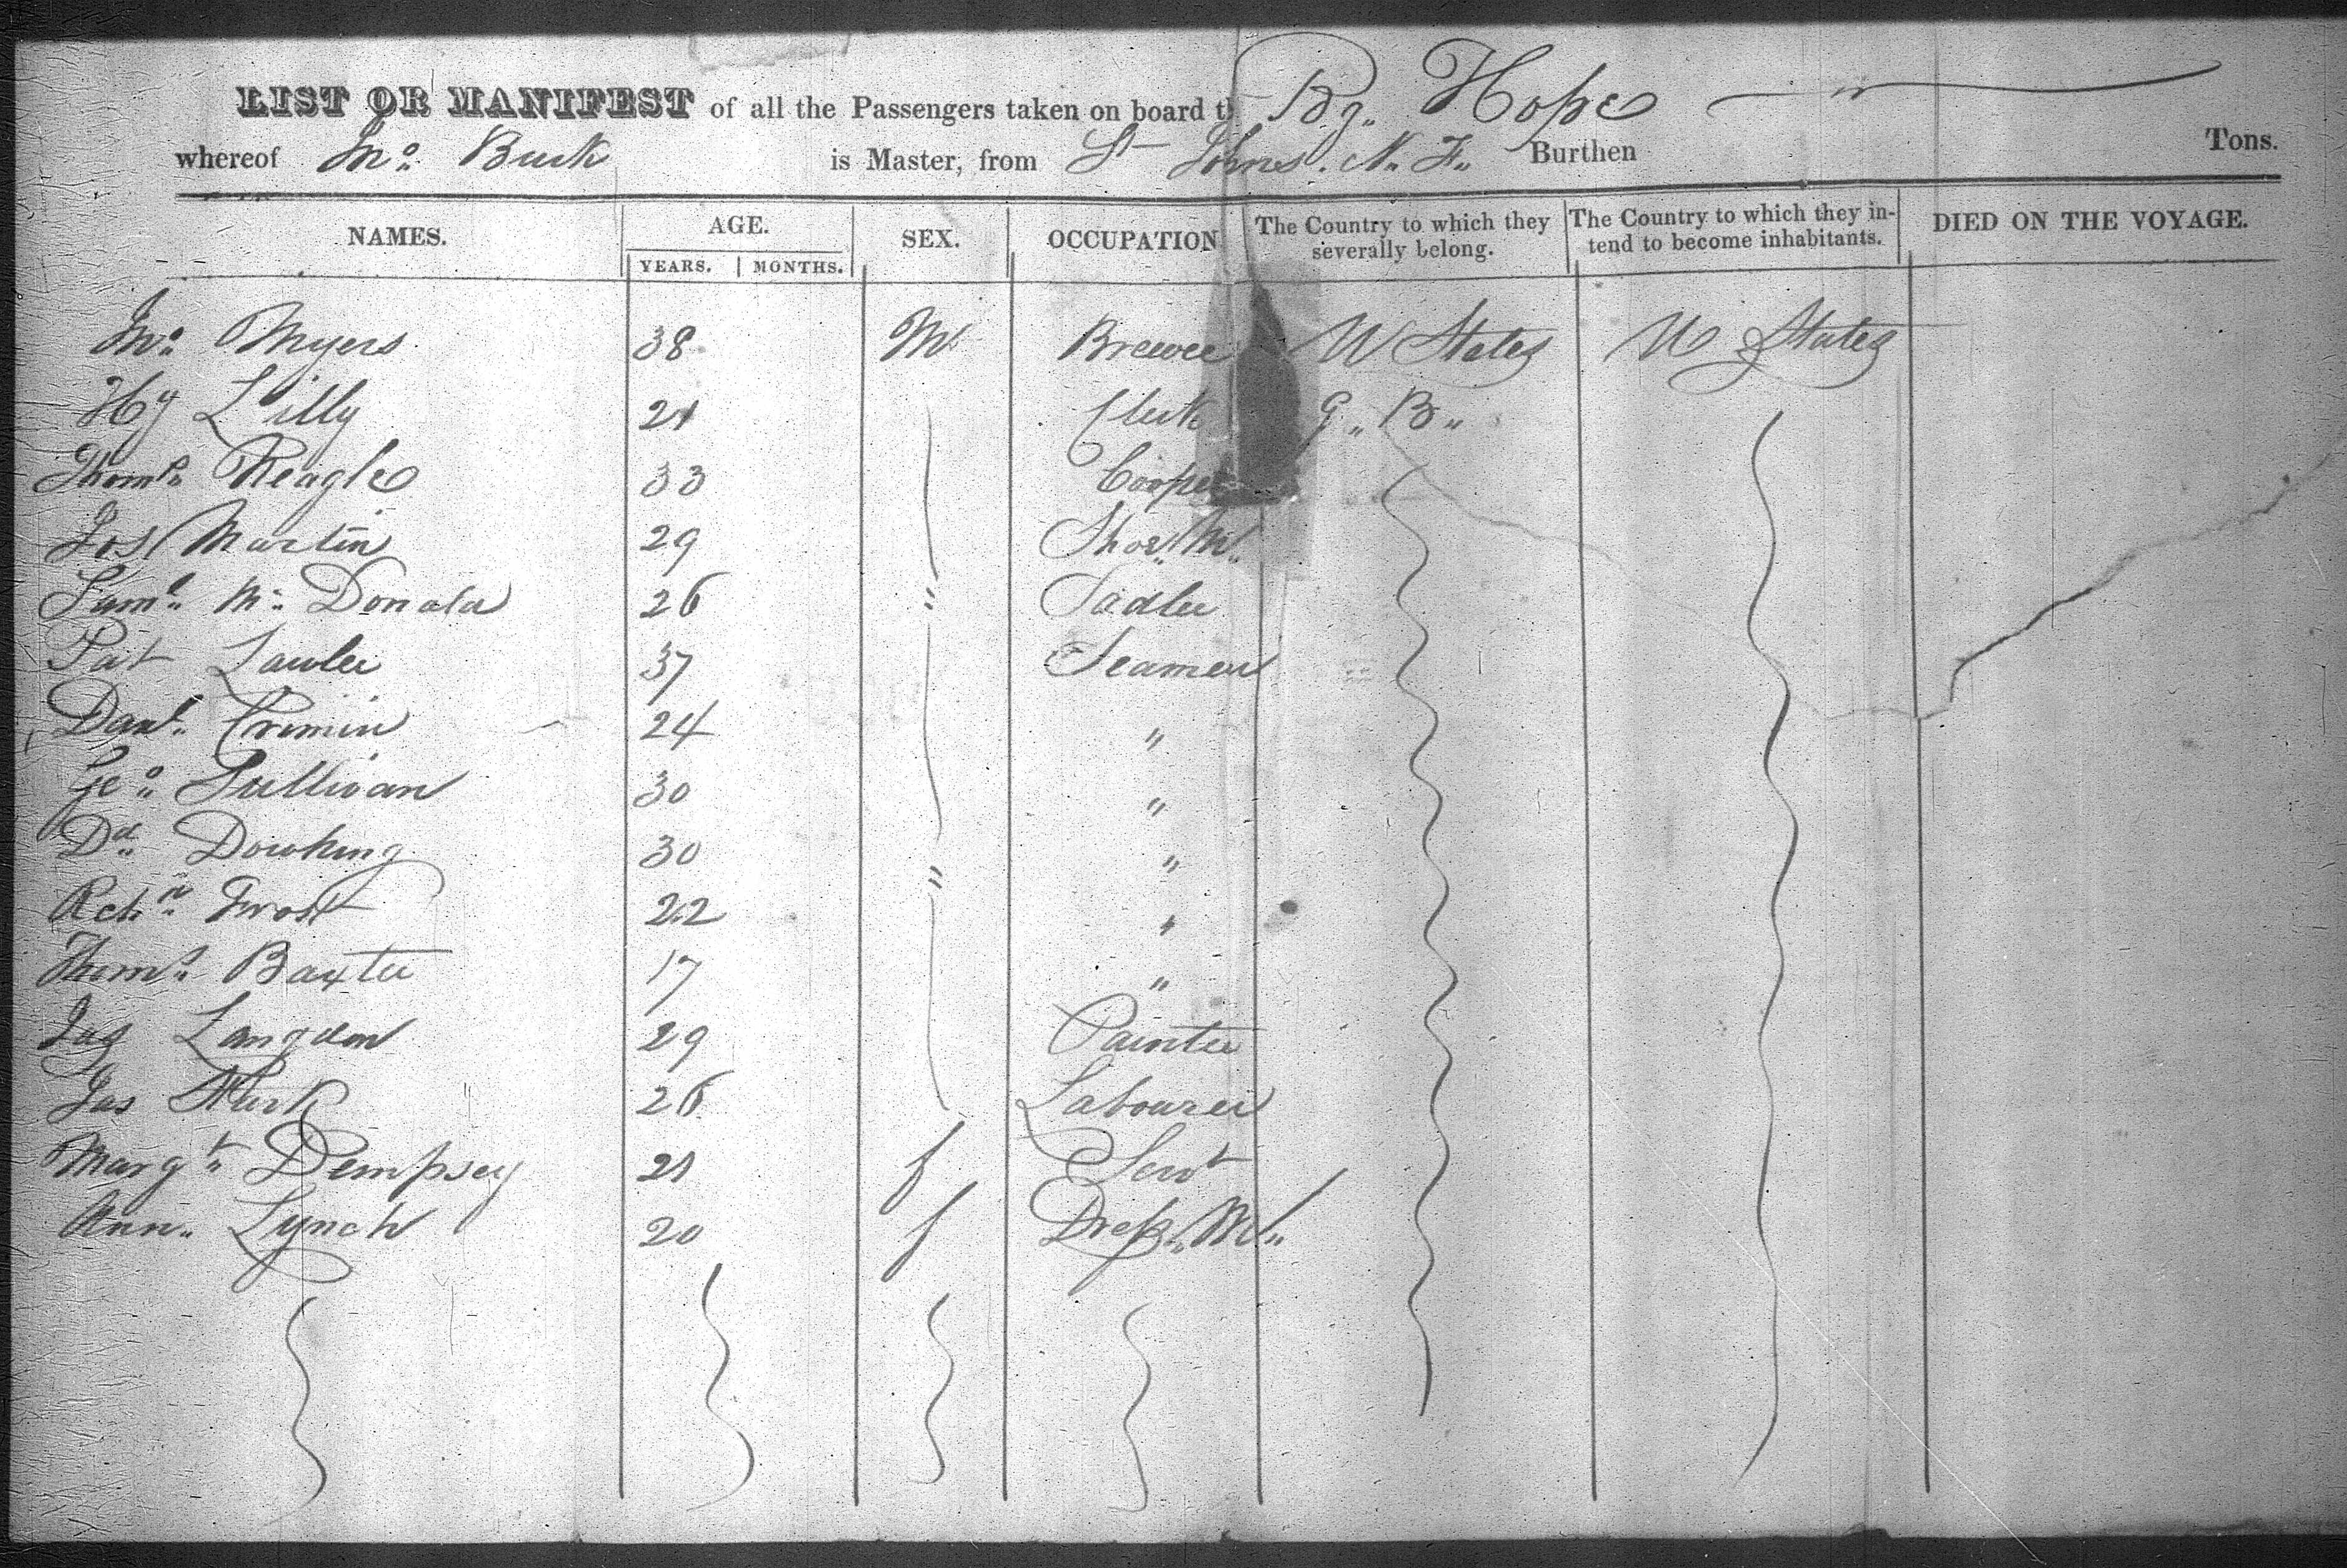 LIST OR MANIFEST of all the Passengers taken on board th Bg. Hope
whereof Jno. Burk is Master, from St Johns. N. F. Burthen Tons.
NAMES. AGE. SEX. OCCUPATION The Country to which they severally belong. The Country to which they intend to become inhabitants. DIED ON THE VOYAGE.
YEARS. MONTHS.
Jno. Myers 38 M Brewer U States U States
Hy Lilly 21 Clerk G. B.
Thoms. Reagle 33 Cooper
Jos Martin 29 Shoe M.
Saml. Mc Donald 26 Sadler
Pat Lawler 37 Seamen
Danl. Crimin 24 "
Geo. Sullivan 30 "
Dd. Dowling 30 "
Rchd. Frost 22 "
Thoms. Baxter 17 "
Jas Langdon 29 Painter
Jas 26 Labourer
Margt. Dempsey 21 f Servt
Ann. Lynch 20 f Dress. M.